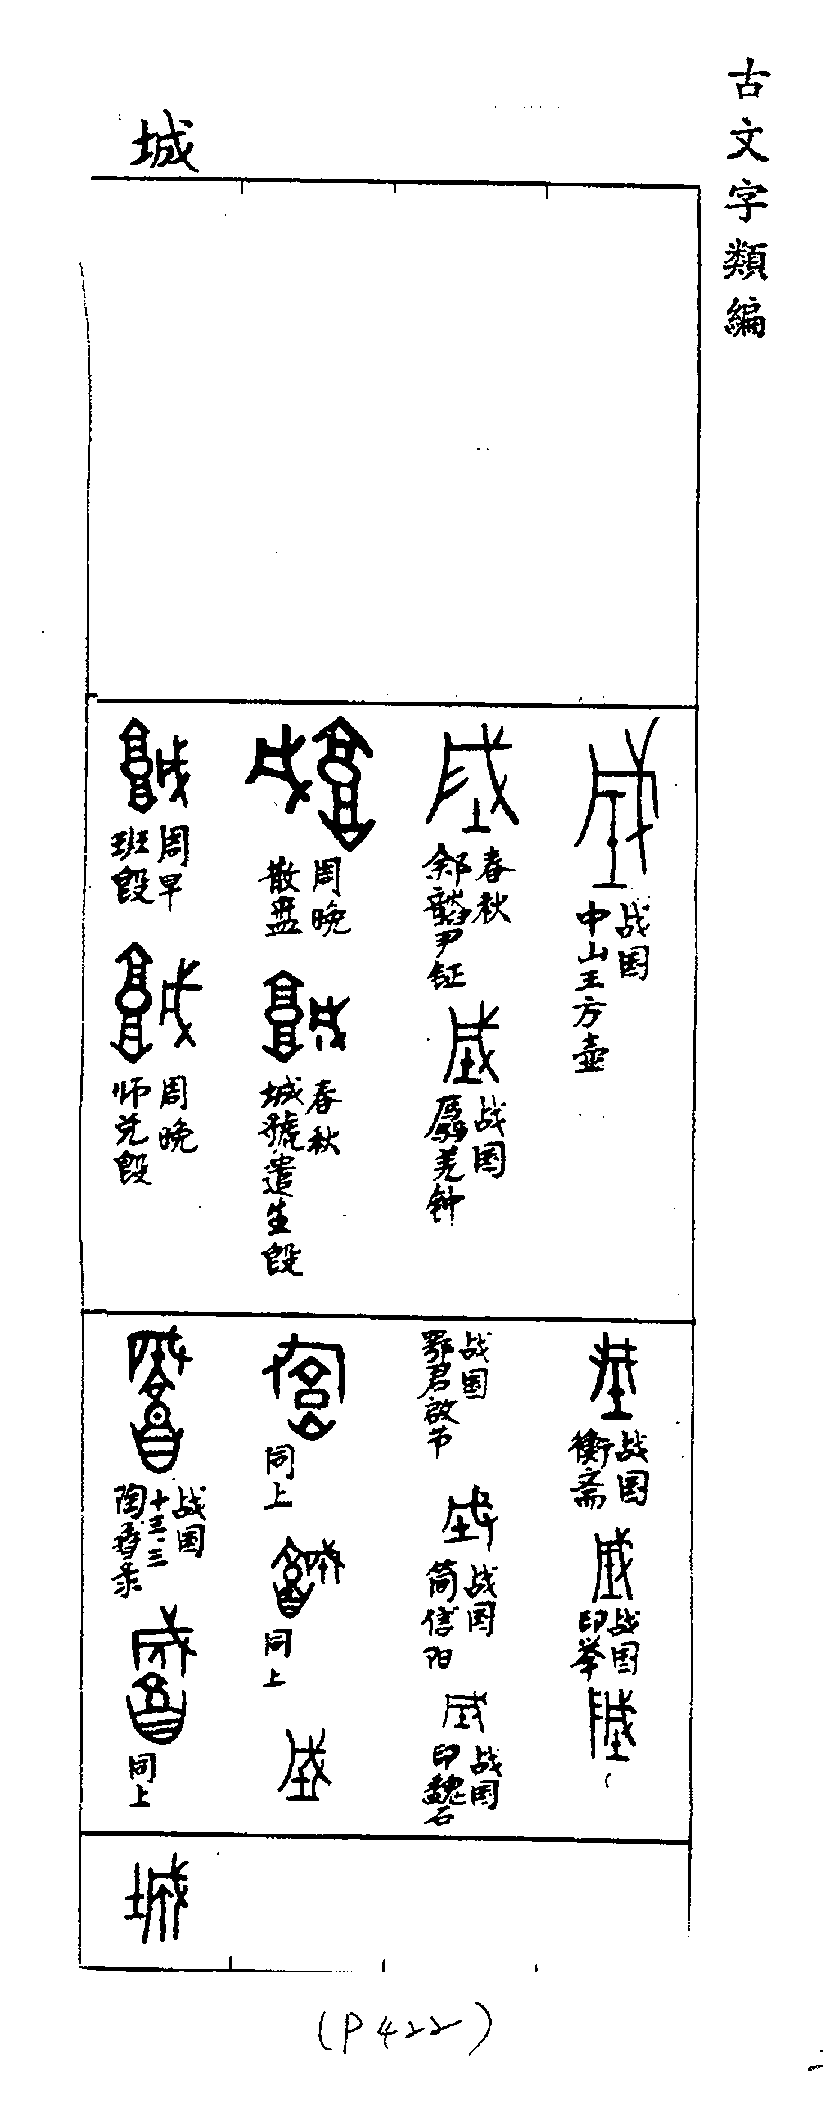 古文字類編
城
周早
班毁
周晚
师兑毁
周晚
散盘
春秋
城虢遣生毁
春秋
䣄
尹钲
战国
羌钟
战国
中山王方壶
战国
十三·三
陶
录
同上
同上
同上
战国
鄂君启节
战国
简信阳
战国
印魏石
战国
衡斋
战国
印举
城
(P422)